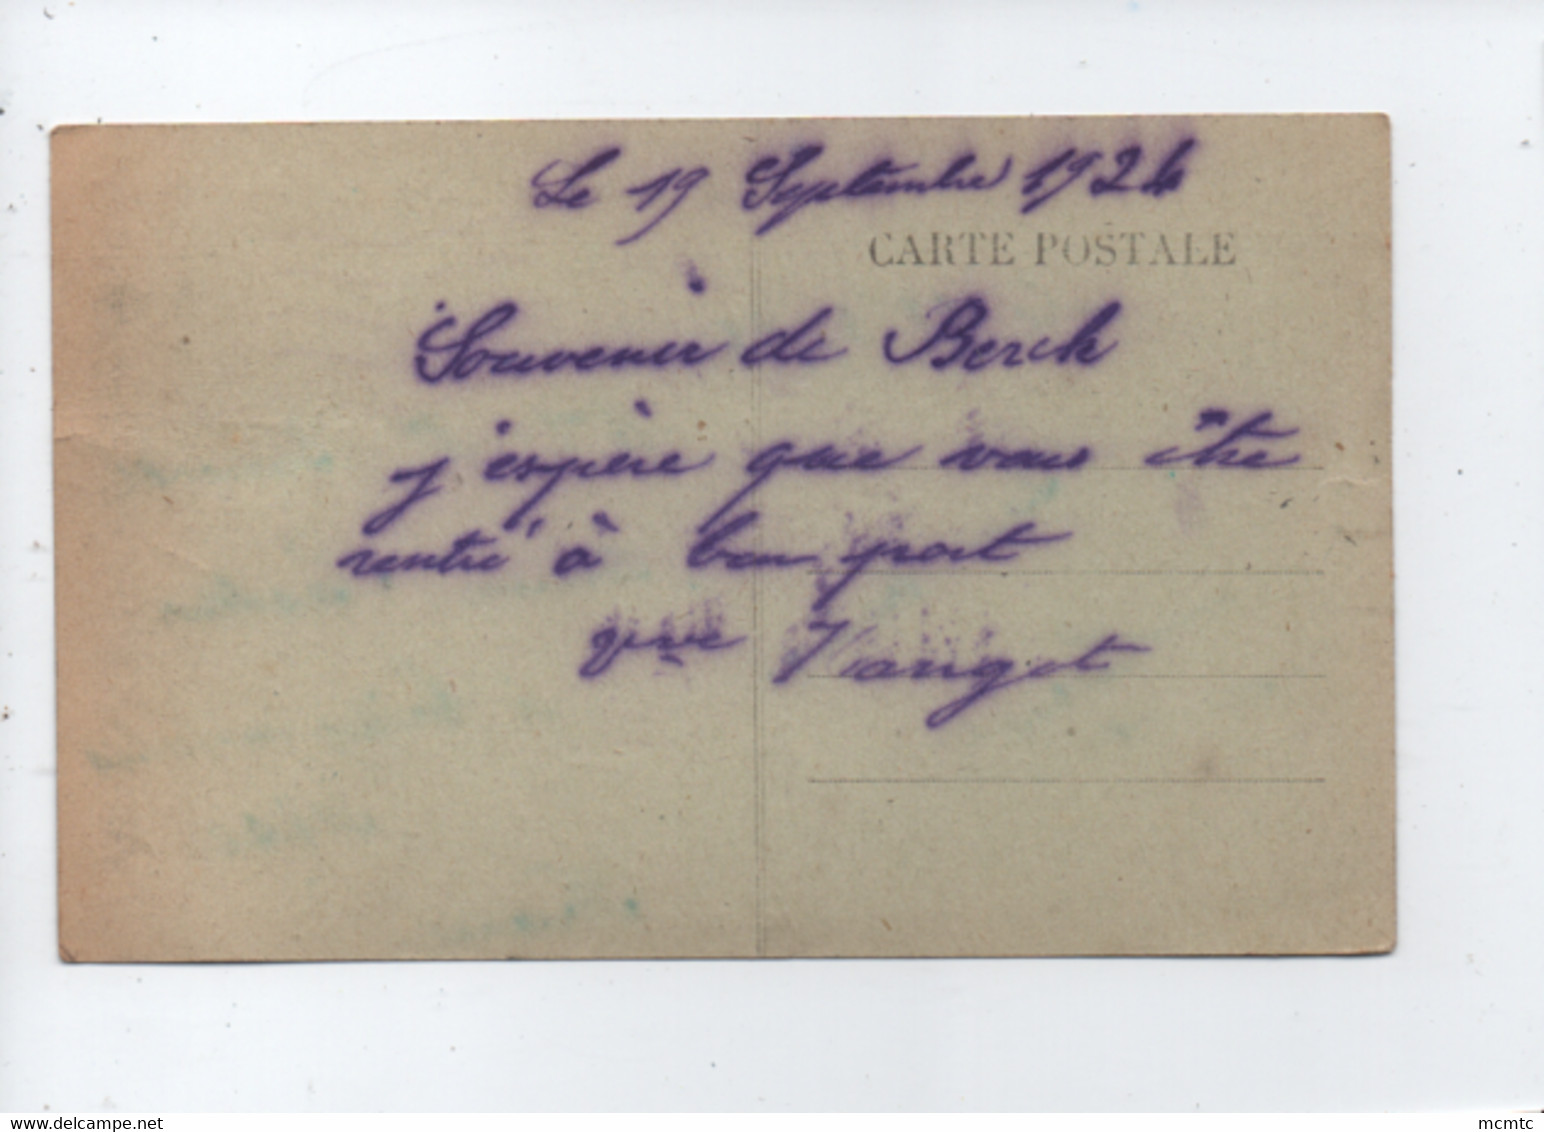 Le 19 Septembre 1924
CARTE POSTALE
Souvenir de Berck
j'espère que vous ête
rentré à bon port
Vangot
mcmtc